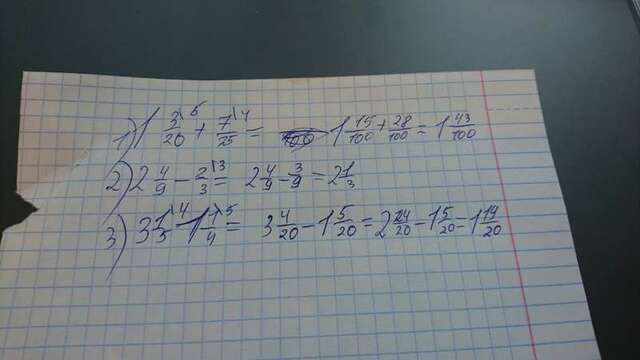 1) 1 3/20 \5 + 7/25 \4 = 1 15/100 + 28/100 = 1 43/100
2) 2 4/9 - 2/3 \3 = 2 4/9 - 3/9 = 2 1/3
3) 3 1/5 \4 - 1 1/4 \5 = 3 4/20 - 1 5/20 = 2 24/20 - 1 5/20 - 1 19/20